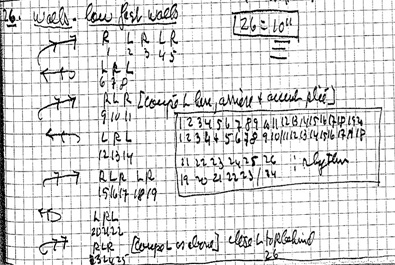 26. walls - low fast walls
26 = 10"
R L R L R
1 2 3 4 5
L R L
6 7 8
R L R [coupé L
9 10 11
L R L
12 13 14
R L R L R
15 16 17 18 19
L R L
20 21 22
R L R [coupé L as above] close L to R behind
23 24 25 26
1 2 3 4 5 6 7 8 9 10 11 12 13 14 15 16 17 18 19 20
1 2 3 4 5 6 7 8 9 10 11 12 13 14 15 16 17 18
21 22 23 24 25 26 : rhythm
19 20 21 22 23 / 24